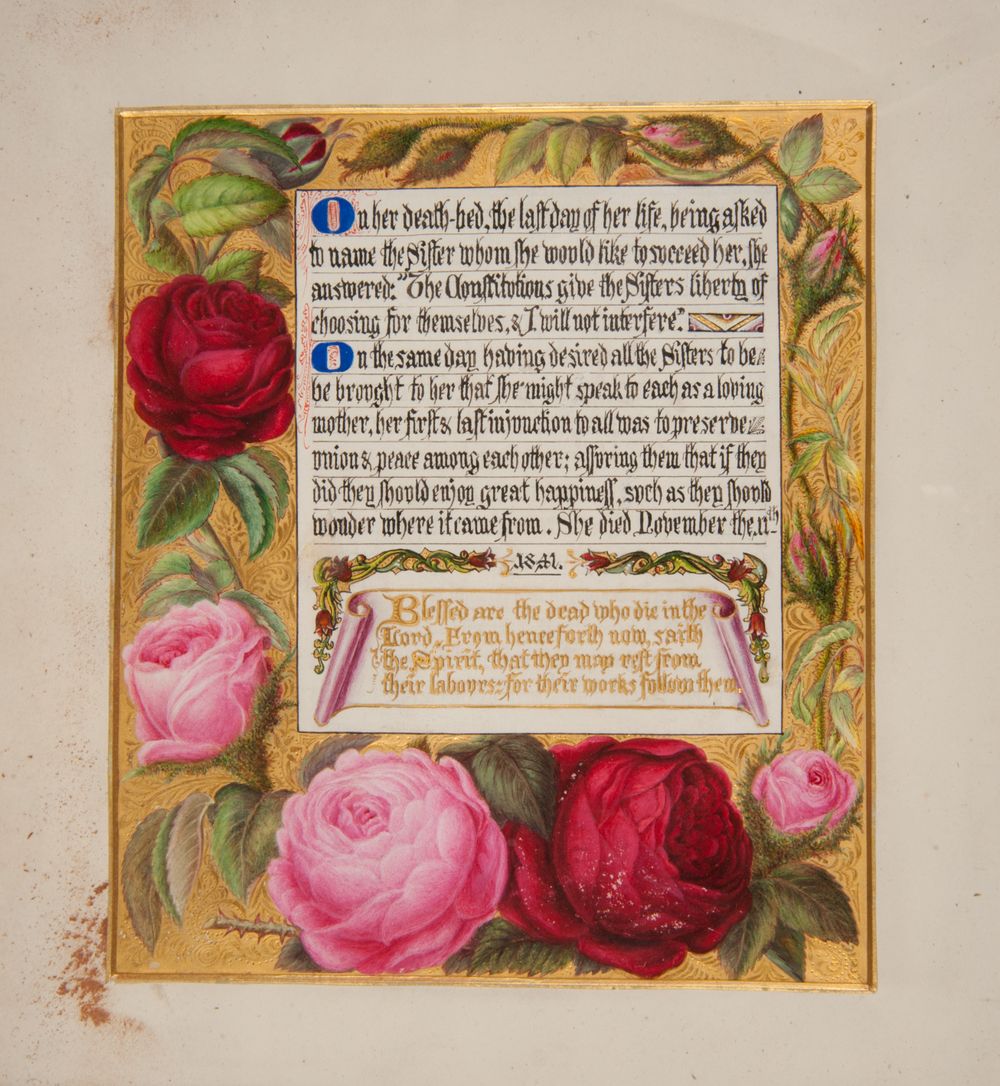 On her death-bed, the last day of her life, being asked
to name the Sister whom she would like to succeed her, she
answered: "The Constitutions give the Sisters liberty of
choosing for themselves, & I will not interfere."
On the same day having desired all the Sisters to be
be brought to her that she might speak to each as a loving
mother, her first & last injunction to all was to preserve
union & peace among each other; assuring them that if they
did they should enjoy great happiness, such as they should
wonder where it came from. She died November the 11th
1841.
Blessed are the dead who die in the
Lord. From henceforth now, saith
the Spirit, that they may rest from
their labours: for their works follow them